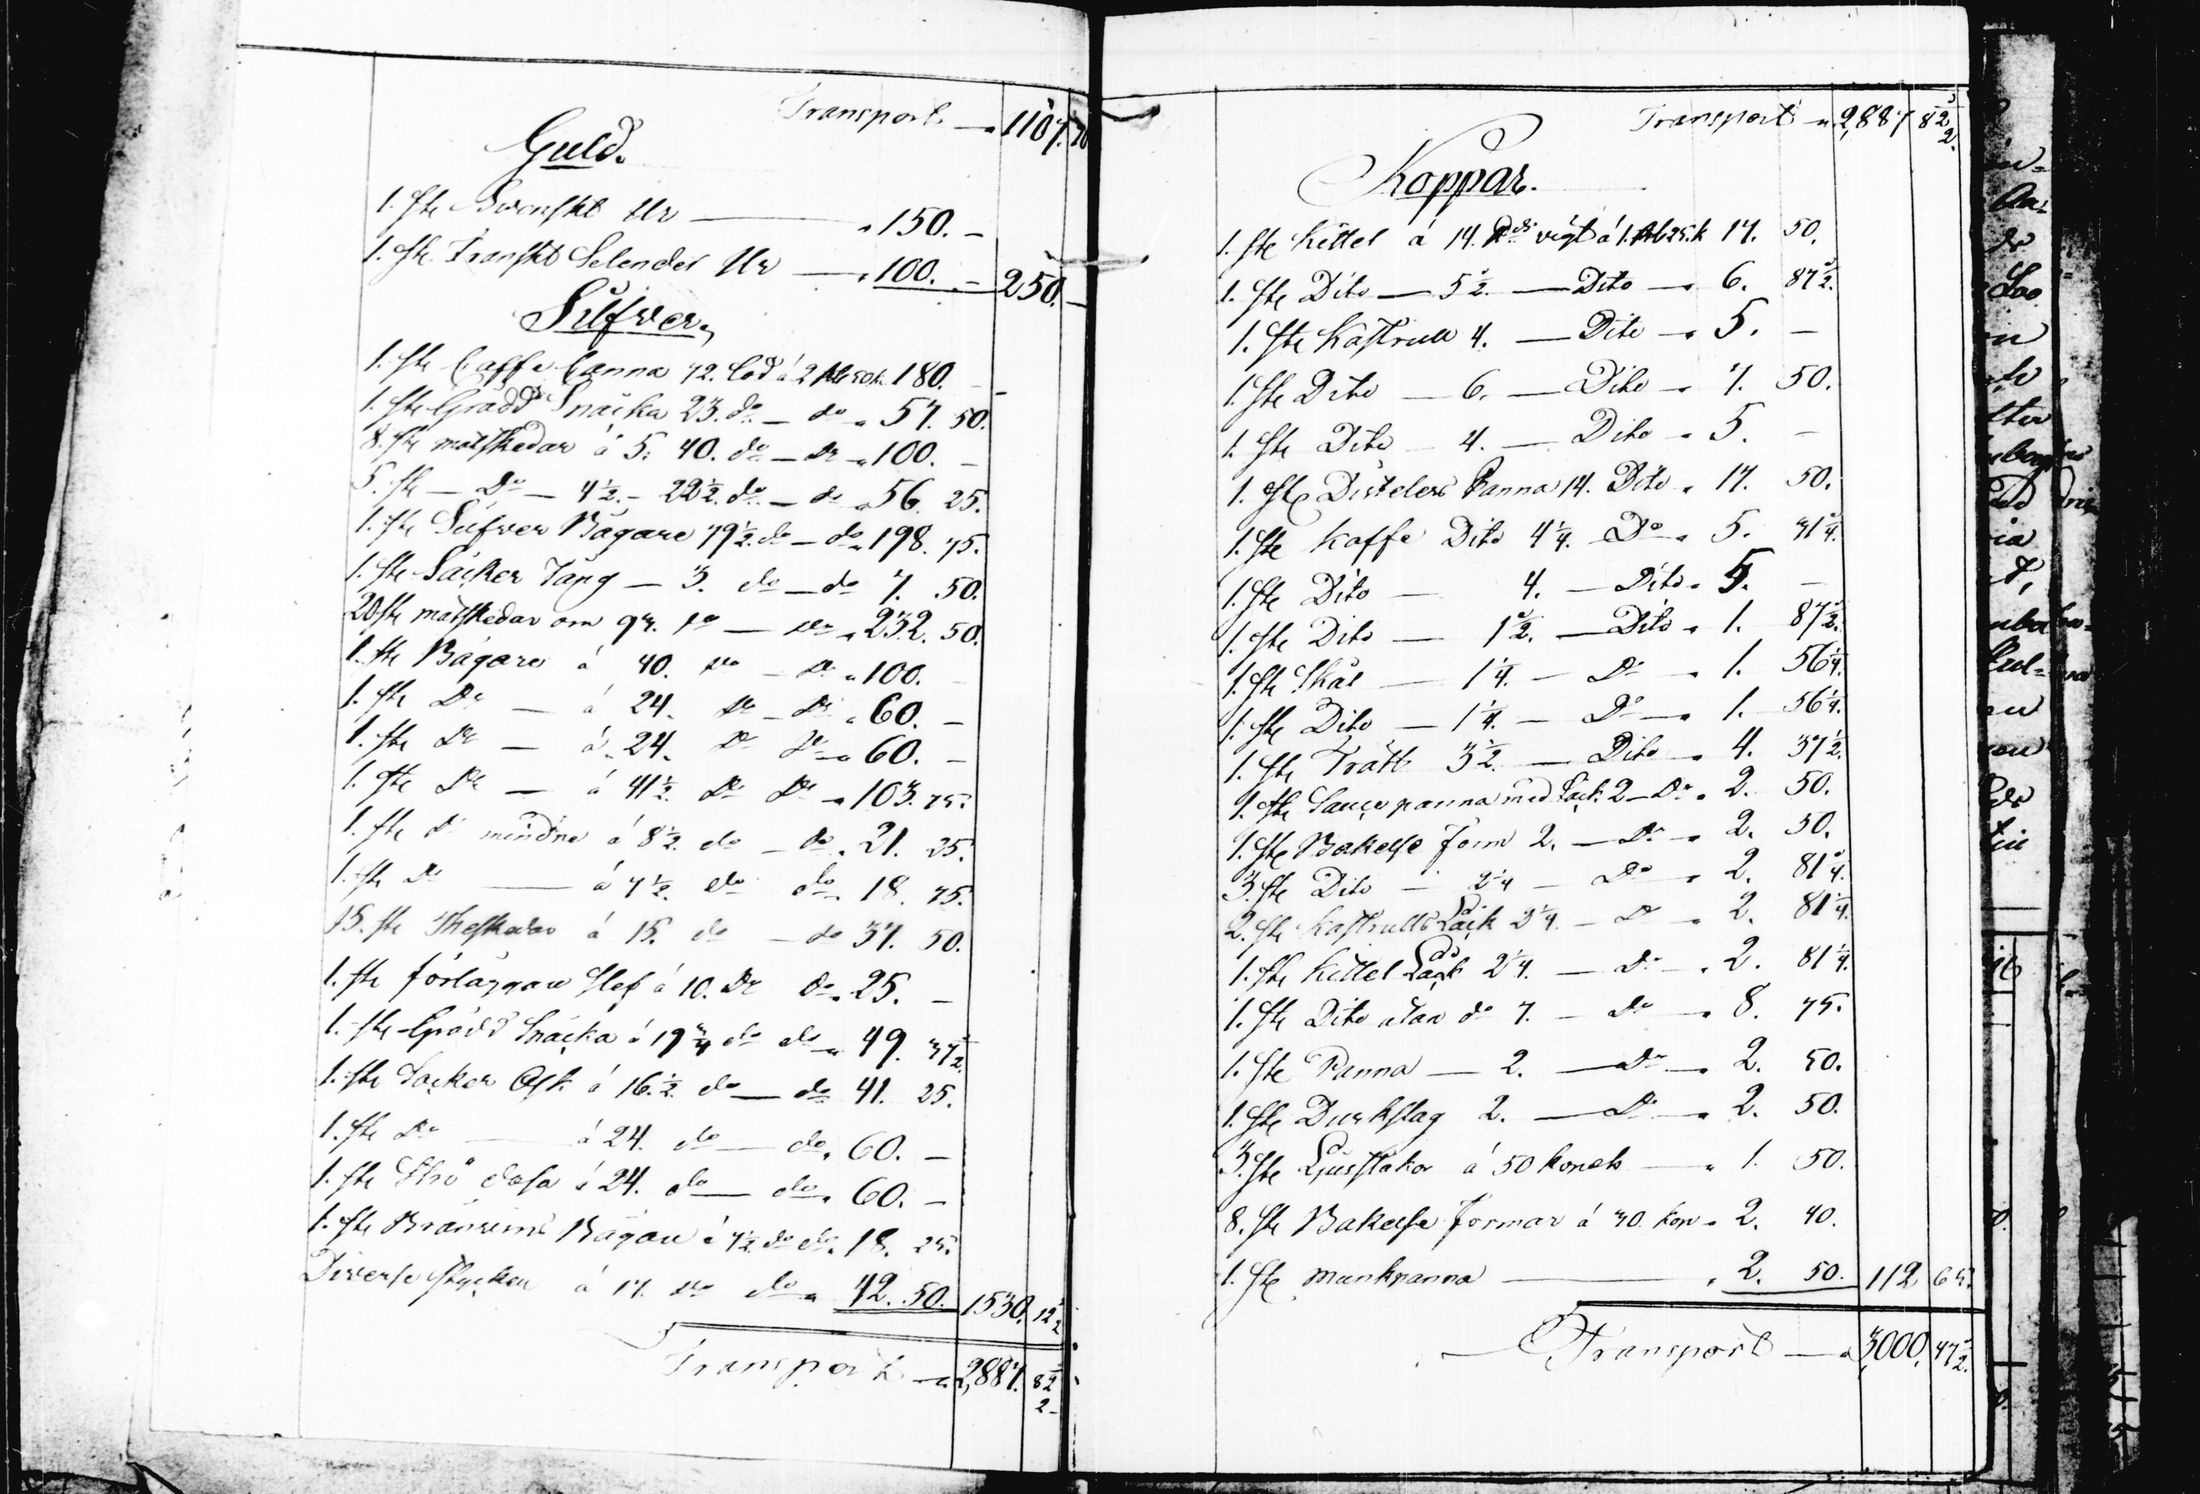 Transport 1107. 70
Guld.
1. ste Svenskt Ur 150. –
1. ste Franskt Selender Ur 100. – 250. –
Silfver.
1. ste Caffe Canna 72. lod á 2 Rub 50 k. 180. –
1. ste Grädd Snäcka 23. do – do 57. 50.
8. ste matskedar á 5. 40. do – do 100. –
5. st – Do – 4½. – 22½. do – do 56. 25.
1. ste Silfver Bägare 79½. do – do 198. 75.
1. ste Säcker Tång – 3. do – do 7. 50.
20 ste matskedar om 93. do – do 232. 50.
1. ste Bägare á 40. do – do 100. –
1. ste Do – á 24. do – do 60. –
1. ste Do – á 24. do do 60. –
1. ste Do – á 41½. do do 103. 75.
1. ste do mindre á 8½. do – do 21. 25.
1. ste do – á 7½. do do 18. 75.
15. ste theskedar á 15. do – do 37. 50.
1. ste förläggare slef á 10. do do 25. –
1. ste Grädd Snäcka á 19¾ do do 49. 37½
1. ste Socker Ask á 16½. do – do 41. 25.
1. ste do – á 24. do – do 60. –
1. ste Strö dosa á 24. do – do 60. –
1. ste Bränvins Bägare á 7½ do do 18. 25.
Diverse stycken á 17. do do 42. 50. 1530. 12½
Transport 2,887. 82½
Transport 2,887 82½.
Koppar.
1. ste Kittel á 14. vigt á 1. Rub 25. k 17. 50.
1. ste Dito – 5½. – Dito – 6. 87½.
1. ste Kastrull 4. – Dito – 5. –
1. ste Dito – 6. – Dito – 7. 50.
1. ste Dito – 4. – Dito – 5. –
1. ste Distelers Panna 14. Dito 17. 50.
1. ste Kaffe Dito 4¼. – Do 5. 31¼.
1. ste Dito – 4. – Dito 5. –
1. ste Dito – 1½. – Dito 1. 87½.
1. ste Skål – 1¼. – Do – 1. 56¼.
1. ste Dito – 1¼. – Do – 1. 56¼.
1. ste Tratt 3½. – Dito – 4. 37½.
1. ste Sauce panna med Läck 2 – Do 2. 50.
1. ste Bakelse form 2. – Do 2. 50.
3. ste Dito – 2¼ – Do 2. 81¼.
2. ste Kastrulls Läck 2¼. – Do 2. 81¼.
1. ste Kittel Läck 2¼. – Do – 2. 81¼.
1. ste Dito utan do 7. – Do – 8. 75.
1. ste Panna – 2. – Do – 2. 50.
1. ste Durkslag 2. – Do – 2. 50.
3. ste Ljusstakar á 50 Kopek – 1. 50.
8. ste Bakelse formar á 30. Kop 2. 40.
1. ste munkpanna 2. 50. 112 65.
Transport 3,000. 47½.